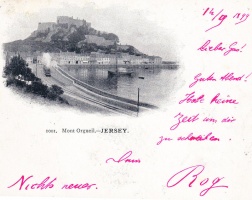 14/9 1899
Lieber Gus!
Guten Abend!
Habe keine
Zeit um dir
zu schreiben.
2001. Mont Orgueil.—JERSEY.
Dein
Nichts neues.
Roy